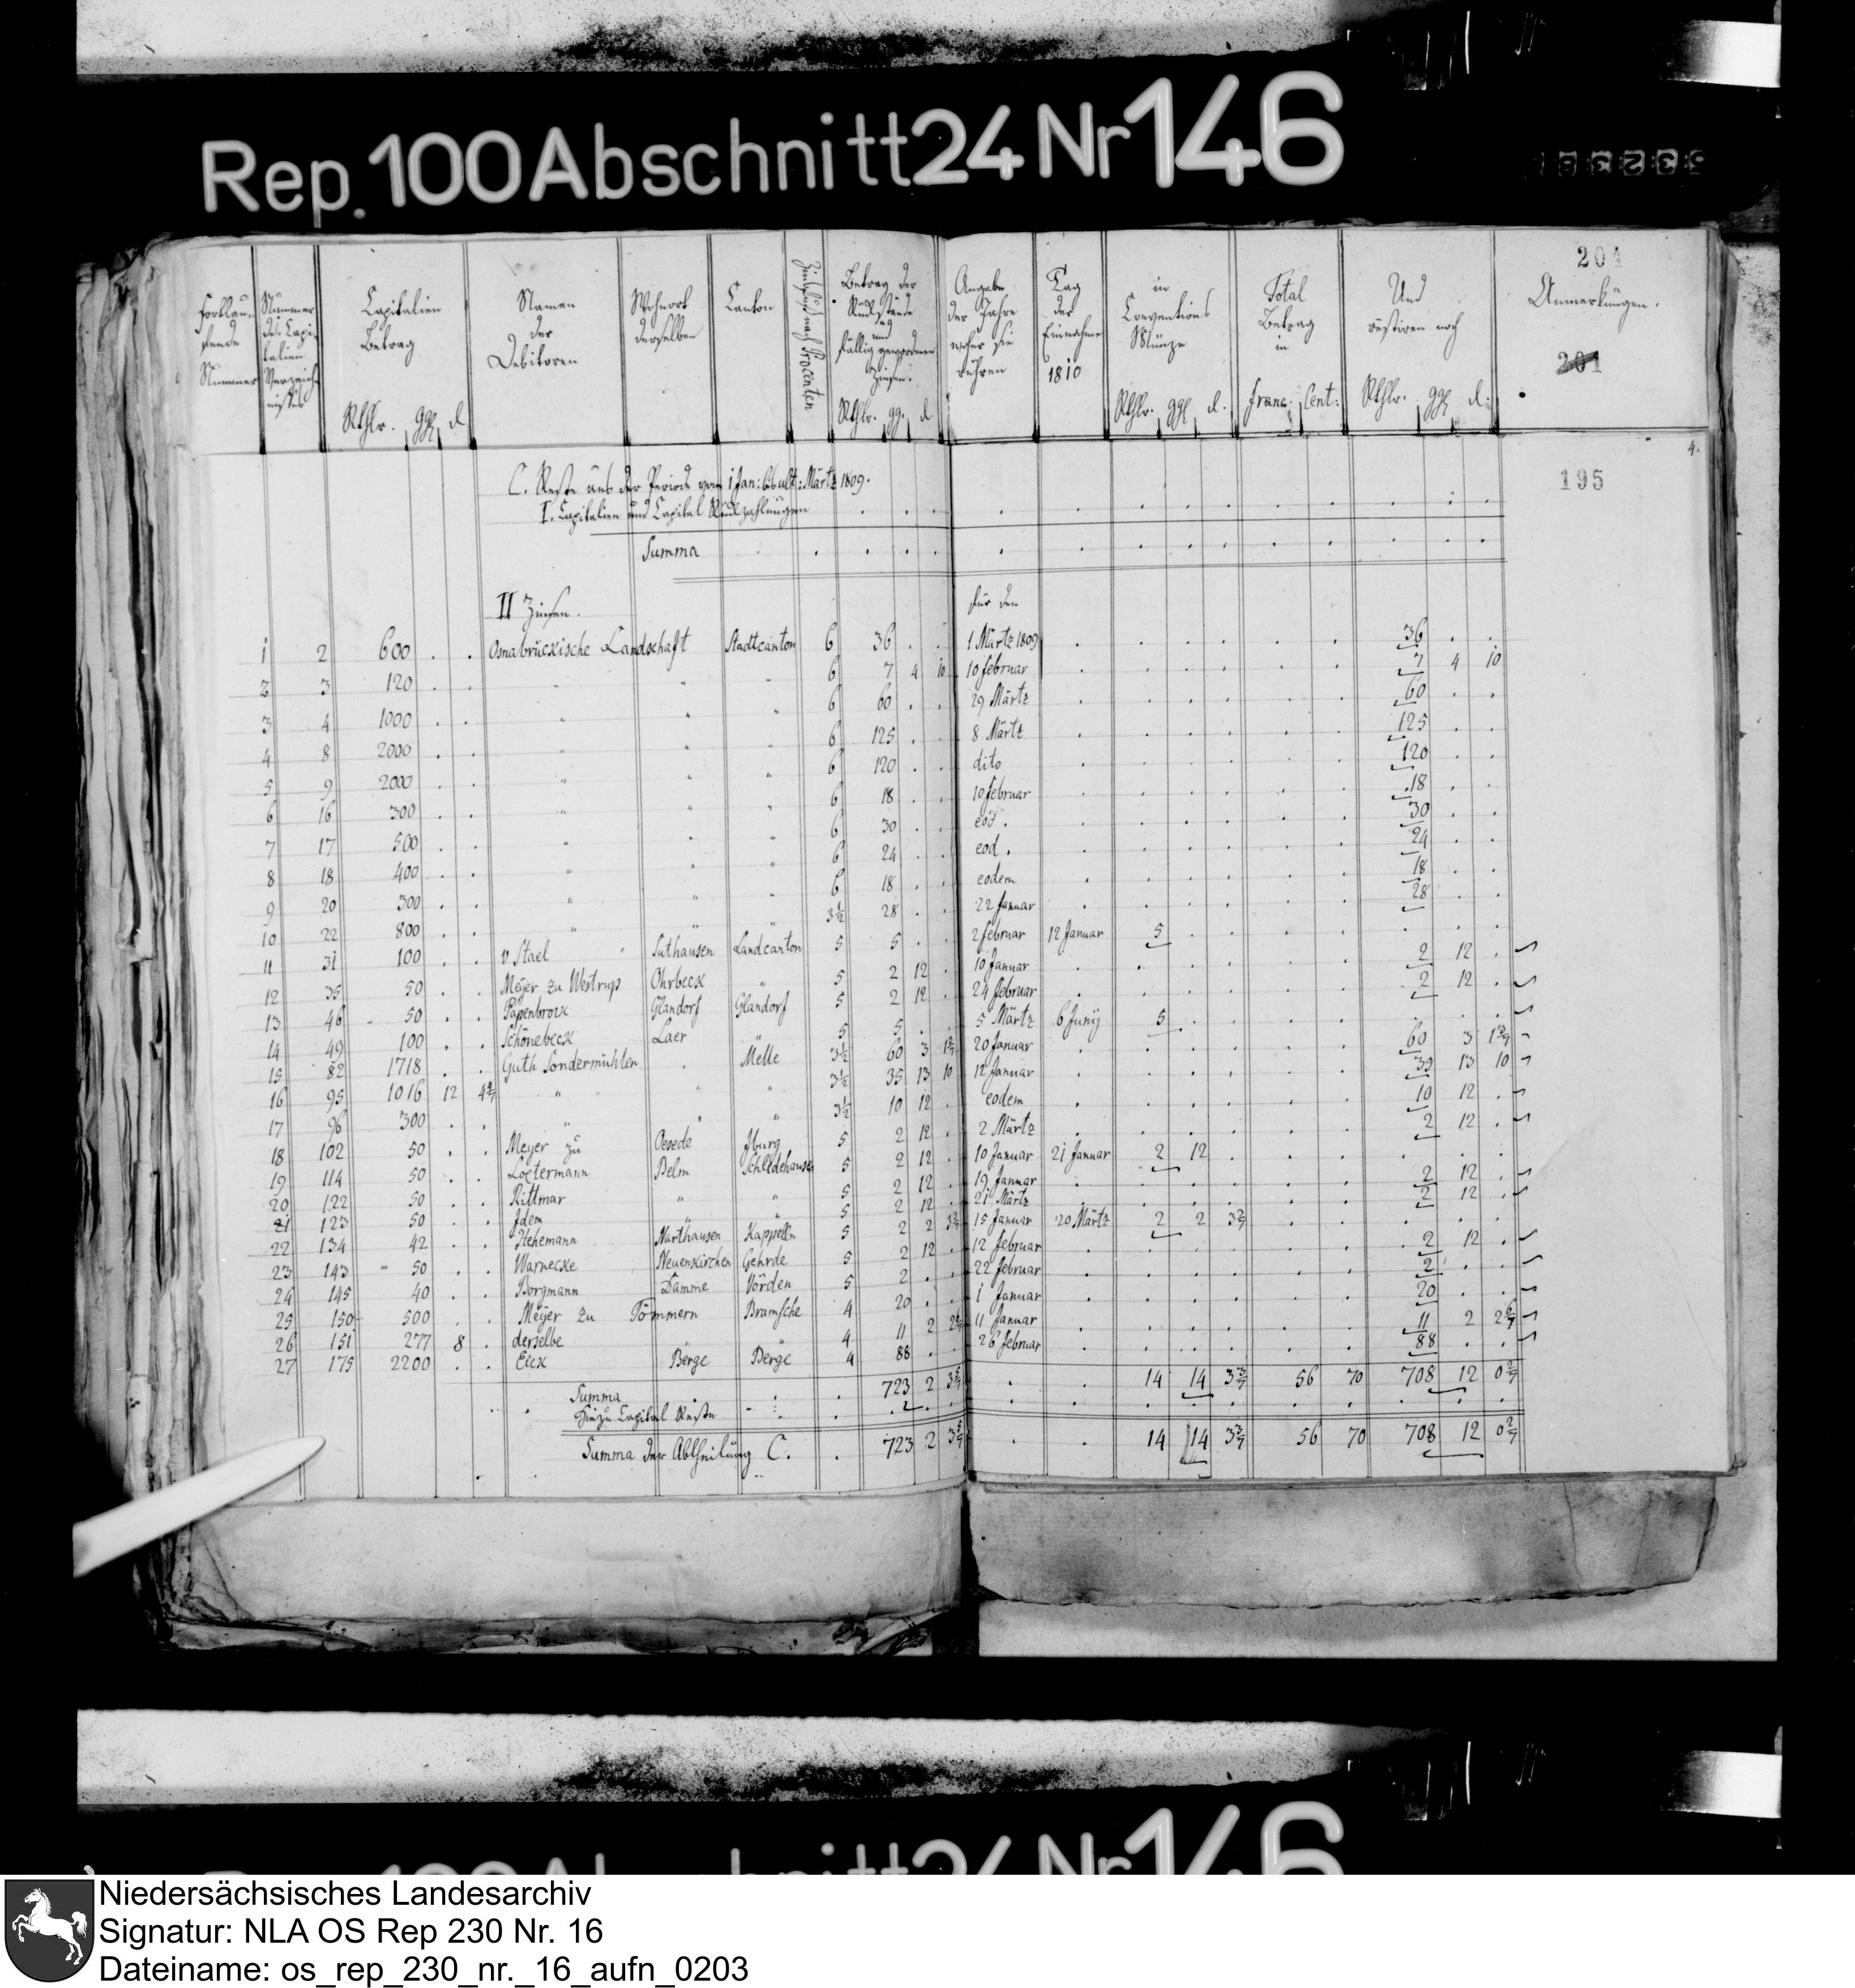 Rep. 100 Abschnitt 24 Nr 146
204
201
195
4.
Fortlaufende Nummer
Nummer des Capitalien Verzeichnisses
Capitalien Betrag
Rthlr. ggl d
Namen der Debitoren
Wohnort derselben
Canton
Zinsfuß nach Procenten
Betrag der Rückstände und fällig gewordenen Zinsen.
Rthlr. gg. d
Angabe der Jahre woher sie rühren
Tag der Einnahme 1810
in Conventions Münze
Rthlr. ggl d.
Total Betrag in
franc. Cent:
Und restiren noch
Rthlr. ggl d.
Anmerkungen.
C. Reste aus der Periode vom 1 Jan: bis ult: Märtz 1809.
I. Capitalien und Capital Rückzahlungen
Summa
II Zinsen. für den
1 2 600 . . Osnabrückische Landschaft Stadtcanton 6 36 . . 1 Märtz 1809 36 . .
2 3 120 . . " " " 6 7 4 10 10 februar 7 4 10
3 4 1000 . . " " " 6 60 . . 29 Märtz 60 . .
4 8 2000 . . " " " 6 125 . . 8 Märtz 125 . .
5 9 2000 . . " " " 6 120 . . dito 120 . .
6 16 300 . . " " " 6 18 . . 10 februar 18 . .
7 17 500 . . " " " 6 30 . . eod. 30 . .
8 18 400 . . " " " 6 24 . . eod. 24 . .
9 20 300 . . " " " 6 18 . . eodem 18 . .
10 22 800 . . " " " 3½ 28 . . 22 Januar 28 . .
11 31 100 . . v. Stael Suthausen Landcanton 5 5 . . 2 februar 12 Januar 5 . .
12 35 50 . . Meyer zu Westrup Ohrbeck " 5 2 12 . 10 Januar 2 12 .
13 46 50 . . Papenbrock Glandorf Glandorf 5 2 12 . 24 februar 2 12 .
14 49 100 . . Schönebeck Laer " 5 5 . . 5 Märtz 6 Junÿ 5 . .
15 82 1718 . . Guth Sondermühlen . Melle 3½ 60 3 1 5/7 20 Januar 60 3 1 5/7
16 95 1016 12 4 4/7 " " " 3½ 35 13 10 12 Januar 35 13 10
17 96 300 . . " " " 3½ 10 12 . eodem 10 12 .
18 102 50 . . Meyer zu Oesede Iburg 5 2 12 . 2 Märtz 2 12 .
19 114 50 . . Loetermann Belm Schledehausen 5 2 12 . 10 Januar 21 Januar 2 12 .
20 122 50 . . Rittmar " " 5 2 12 . 19 Januar 2 12 .
21 123 50 . . Idem " " 5 2 12 . 21 Märtz 2 12 .
22 134 42 . . Hehemann Narthausen Kappelln 5 2 2 3 3/7 15 Januar 20 Märtz 2 2 3 3/7
23 143 50 . . Warnecke Neuenkirchen Gehrde 5 2 12 . 12 februar 2 12 .
24 145 40 . . Borgmann Damme Vörden 5 2 . . 22 februar 2 . .
25 150 500 . . Meyer zu Tömmern Bramsche 4 20 . . 1 Januar 20 . .
26 151 277 8 . derselbe " " 4 11 2 2 6/7 11 Januar 11 2 2 6/7
27 175 2200 . . Eick Berge Berge 4 88 . . 26 februar 88 . .
Summa 723 2 3 5/7 . . 14 14 3 3/7 56 70 708 12 0 2/7
Hinzu Capital Reste
Summa der Abtheilung C. 723 2 3 5/7 . . 14 14 3 3/7 56 70 708 12 0 2/7
Niedersächsisches Landesarchiv
Signatur: NLA OS Rep 230 Nr. 16
Dateiname: os_rep_230_nr._16_aufn_0203